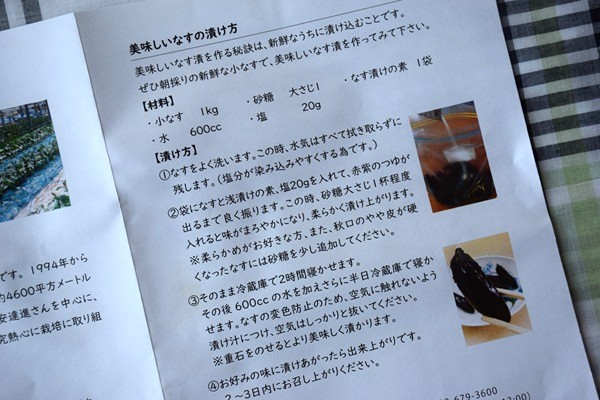 美味しいなすの漬け方
美味しいなす漬を作る秘訣は、新鮮なうちに漬け込むことです。
ぜひ朝採りの新鮮な小なすで、美味しいなす漬を作ってみて下さい。
【材料】
・小なす 1kg ・砂糖 大さじ1 ・なす漬けの素 1袋
・水 600cc ・塩 20g
【漬け方】
①なすをよく洗います。この時、水気はすべて拭き取らずに
残します。(塩分が染み込みやすくする為です。)
②袋になすと浅漬けの素、塩20gを入れて、赤紫のつゆが
出るまで良く振ります。この時、砂糖大さじ1杯程度
入れると味がまろやかになり、柔らかく漬け上がります。
※柔らかめがお好きな方、また、秋口のやや皮が硬
くなったなすには砂糖を少し追加してください。
③そのまま冷蔵庫で2時間寝かせます。
その後600ccの水を加えさらに半日冷蔵庫で寝か
せます。なすの変色防止のため、空気に触れないよう
漬け汁につけ、空気はしっかりと抜いてください。
※重石をのせるとより美味しく漬かります。
④お好みの味に漬けあがったら出来上がりです。
2～3日内にお召し上がりください。
-679-3600
です。1994年から
約4600平方メートル
安達進さんを中心に、
究熱心に栽培に取り組